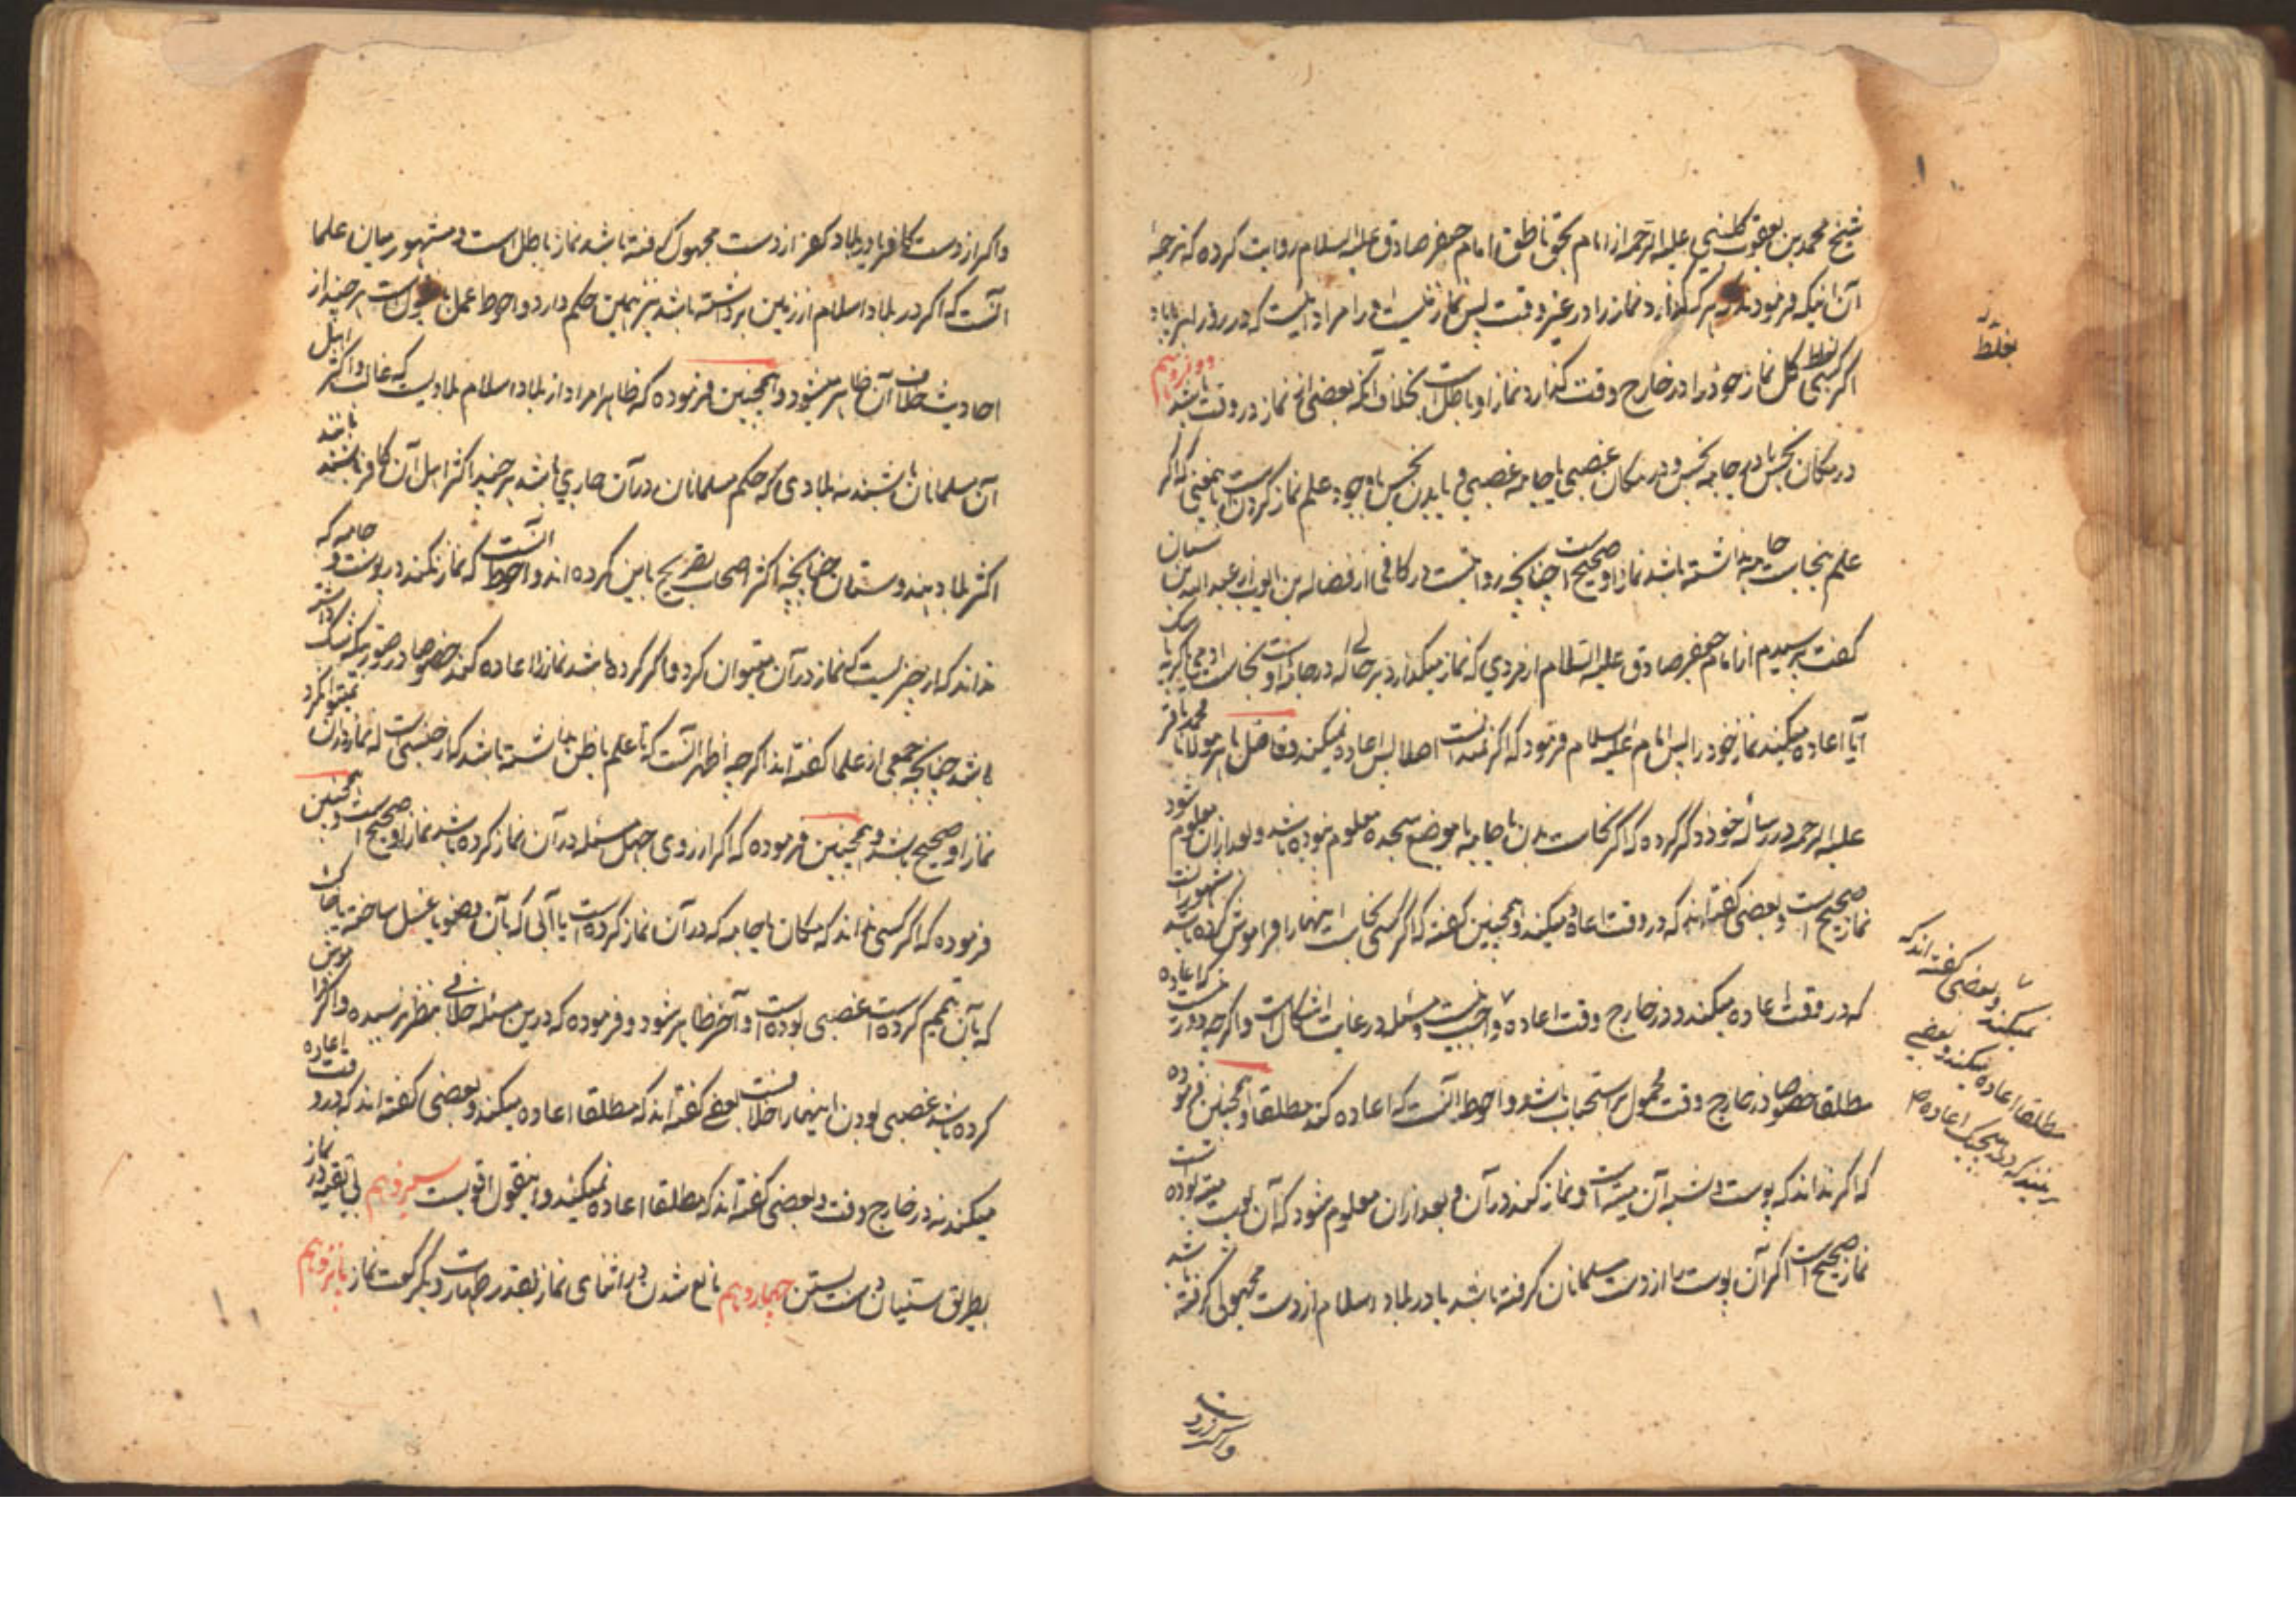 شیخ محمد بن یعقوب کلینی علیه الرحمه از امام بحق ناطق امام جعفر صادق علیه السلام روایت کرده که ترجمهٔ
آن اینکه فرمودند که هر که گذارد نماز را در غیر وقت پس نماز نیست او را مراد اینست که در روز ابر یا باد
اگر کسی بغلط کل نماز خود را در خارج وقت گذارد نماز او باطل است بخلاف آنکه بعضی از نماز در وقت باشد دوازدهم
در مکان نجس یا در جامه نجس و در مکان غصبی یا جامه غصبی و یا بدن نجس باوجود علم نماز کردن است باینمعنی که اگر
علم بنجاست جامه نداشته باشد نماز او صحیح است چنانچه روایتست در کافی از فضاله بن ایوب از عبد الله بن سنان
گفت پرسیدم از امام جعفر صادق علیه السلام از مردی که نماز میگذارد بر حالی که در جامه اوست نجاست آدمی یا گربه یا سگ
آیا اعاده میکند نماز خود را پس امام علیه السلام فرمود که اگر ندانست اصلا پس اعاده نمیکند و فاضل باهر مولانا محمد باقر
علیه الرحمه در رساله خود ذکر کرده که اگر نجاست بدن یا جامه یا موضع سجده معلوم نبوده باشد و بعد از آن معلوم شود
نماز صحیح است و بعضی گفته اند که در وقت اعاده میکند و همچنین گفته که اگر کسی نجاست اینهارا فراموش کرده باشد مشهور آنست
که در وقت اعاده میکند و در خارج وقت اعاده واجب نیست و مسئله در غایت اشکالست و اگرچه دور نیست که اعاده
مطلقا خصوصا در خارج وقت محمول بر استحباب باشد و احوط آنست که اعاده کند مطلقا و همچنین فرموده
که اگر نداند که پوست و شبه آن میته است و نماز کند در آن و بعد از آن معلوم شود که آن پوست میته بوده است
نماز صحیح است اگر آن پوست را از دست مسلمانان گرفته باشد یا در بلاد اسلام از دست مجهولی گرفته باشد
بغلط
و بعضی گفته اند که
نمیکند
مطلقا اعاده میکند و بعضی
و اگر از دست
و اگر از دست کافر یا در بلاد کفر از دست مجهول گرفته باشد نماز باطل است و مشهور میان علما
آنست که اگر در بلاد اسلام از زمین برداشته باشد نیز همین حکم دارد و احوط عمل بقول است هر چند از
احادیث خلاف آن ظاهر میشود و همچنین فرموده که ظاهرا مراد از بلاد اسلام بلادیست که غالب و اکثر اهل
آن مسلمانان باشند نه بلادی که حکم مسلمانان در آن جاری باشد هر چند اکثر اهل آن کافر باشند مانند
اکثر بلاد هندوستان چنانچه اکثر اصحاب تصریح باین کرده اند و احوط آنست که نماز نکند در پوست و جامه که
نداند که از چیزیست که نماز در آن میتوان کرد و اگر کرده باشد نماز را اعاده کند خصوصا در صورتیکه شک داشته
باشد چنانچه جمعی از علما گفته اند اگرچه اظهر آنست که تا علم یا ظن نداشته باشد که از جنسی است که نماز در آن نمیتوان کرد
نماز او صحیح باشد و همچنین فرموده که اگر از روی جهل مسئله در آن نماز کرده باشد نماز او صحیح است و همچنین
فرموده که اگر کسی نداند که مکان یا جامه که در آن نماز کرده است یا آبی که بآن وضو یا غسل ساخته یا خاک
که بآن تیمم کرده است غصبی بوده است و آخر ظاهر شود و فرموده که درین مسئله خلافی بنظر نرسیده و اگر فراموش
کرده باشد غصبی بودن اینهارا خلافست بعضی گفته اند که مطلقا اعاده میکند و بعضی گفته اند که در وقت اعاده
میکند نه در خارج وقت و بعضی گفته اند که مطلقا اعاده نمیکند و اینقول اقویست سیزدهم بی تقیه در نماز
بطریق سنیان دست بستن چهاردهم مانع شدن در اثنای نماز بقدر طهارت و یکرکعت نماز پانزدهم